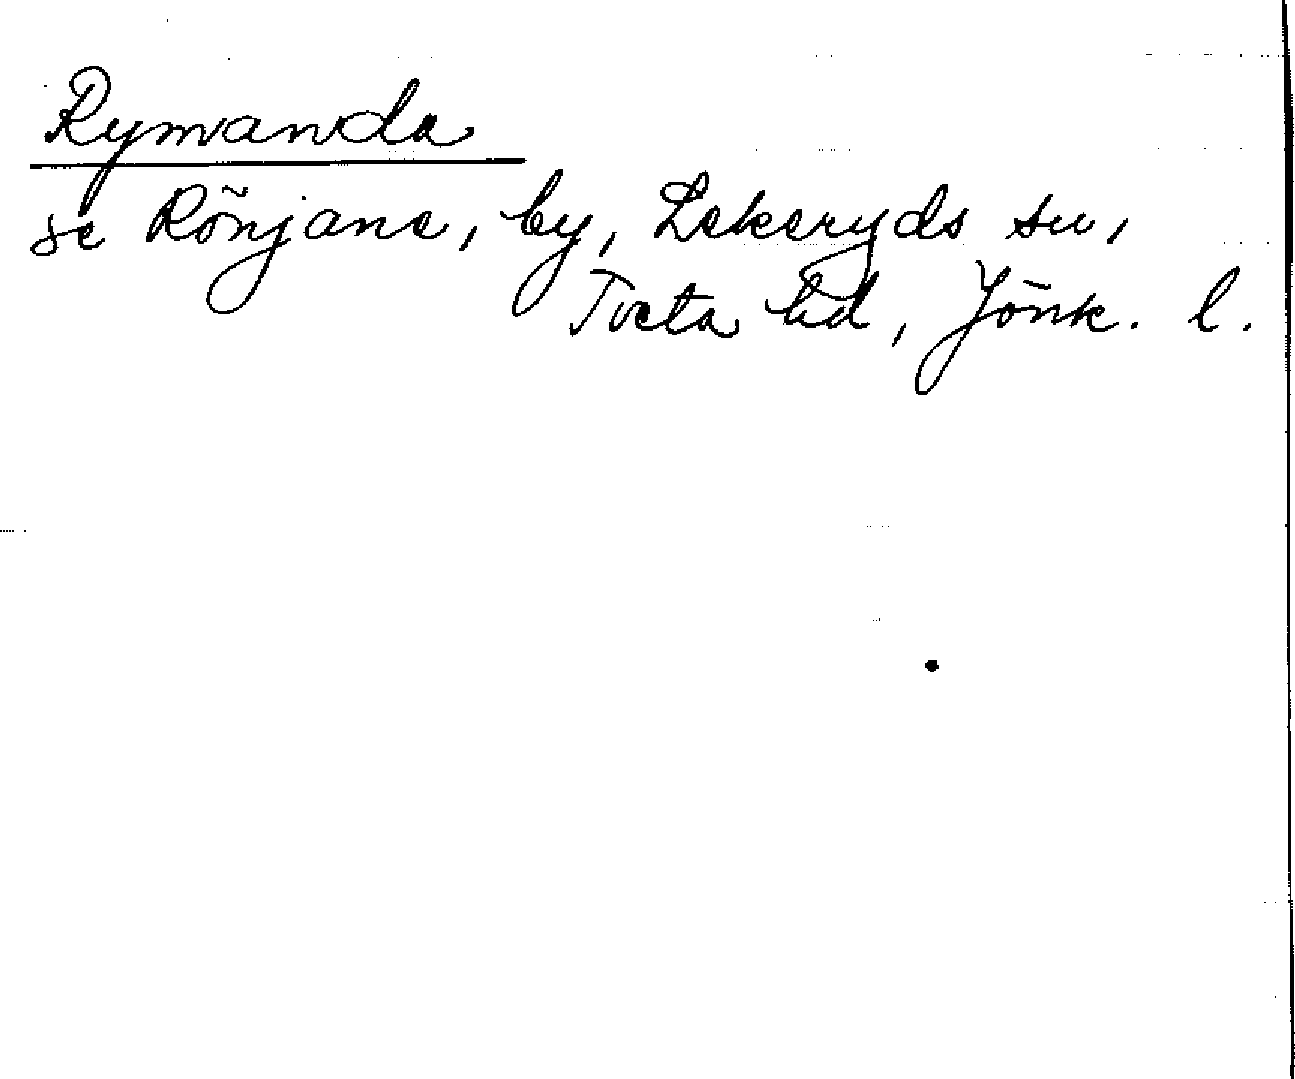 Rymanda
se Rönjane, by, Lekeryds sn,
Tveta hd, Jönk. l.